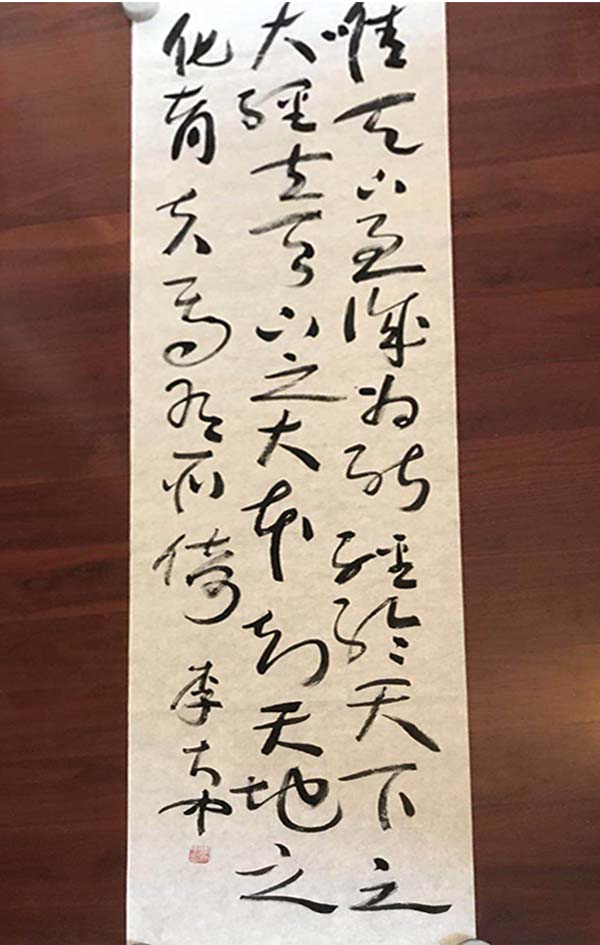 唯天下至誠為能經綸天下之
大經立天下之大本知天地之
化育夫焉有所倚
李